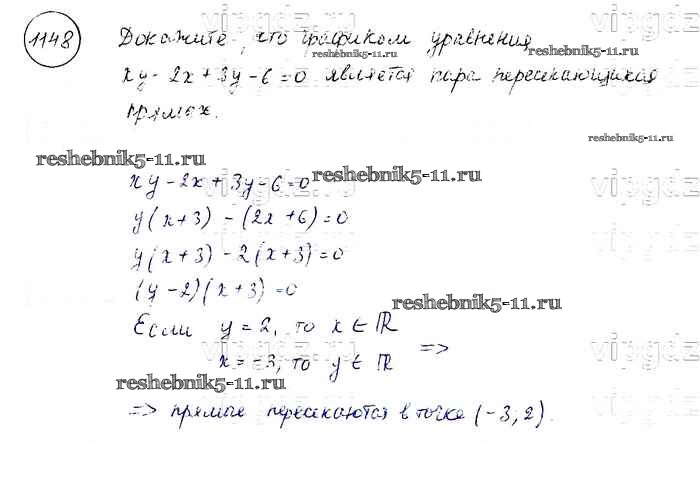 1148
Докажите, что графиком уравнения
reshebnik5-11.ru
xy-2x+3y-6=0 является пара пересекающихся
прямых.
reshebnik5-11.ru
reshebnik5-11.ru
reshebnik5-11.ru
xy-2x+3y-6=0
y(x+3)-(2x+6)=0
y(x+3)-2(x+3)=0
(y-2)(x+3)=0
reshebnik5-11.ru
Если y=2, то x∈ℝ
x=-3, то y∈ℝ =>
reshebnik5-11.ru
=> прямые пересекаются в точке (-3,2).